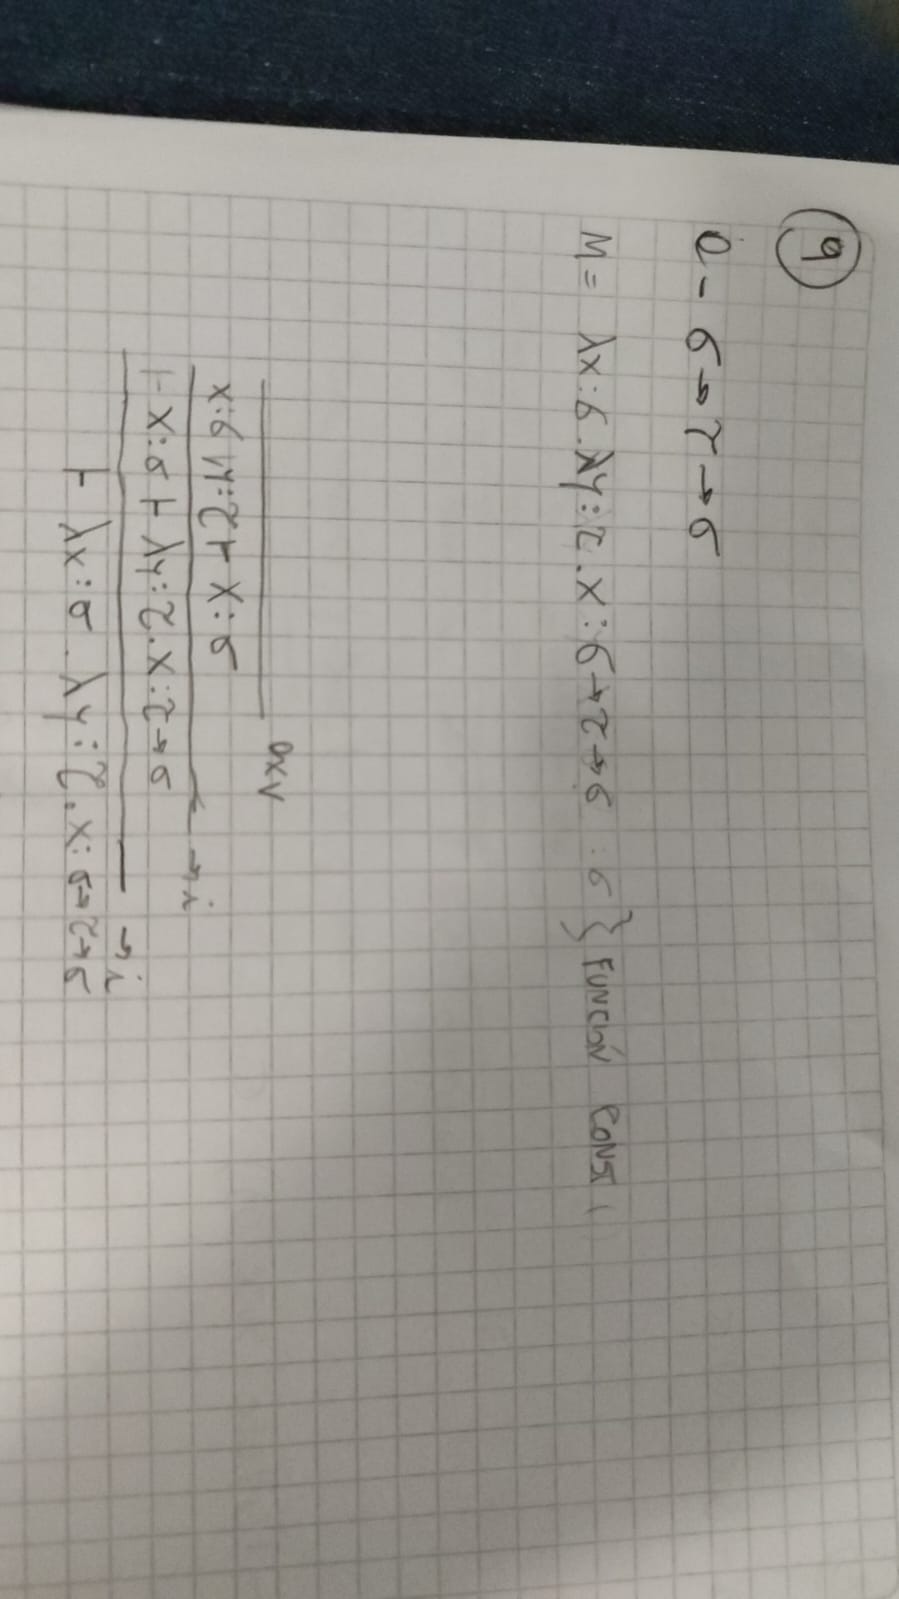 9
a - σ → τ → σ
M = λx:σ.λy:τ.x : σ→τ→σ :σ } FUNCIÓN CONST
axv
x:σ, y:τ ⊢ x:σ
→i
x:σ ⊢ λy:τ.x:τ→σ
→i
⊢ λx:σ.λy:τ.x:σ→τ→σ